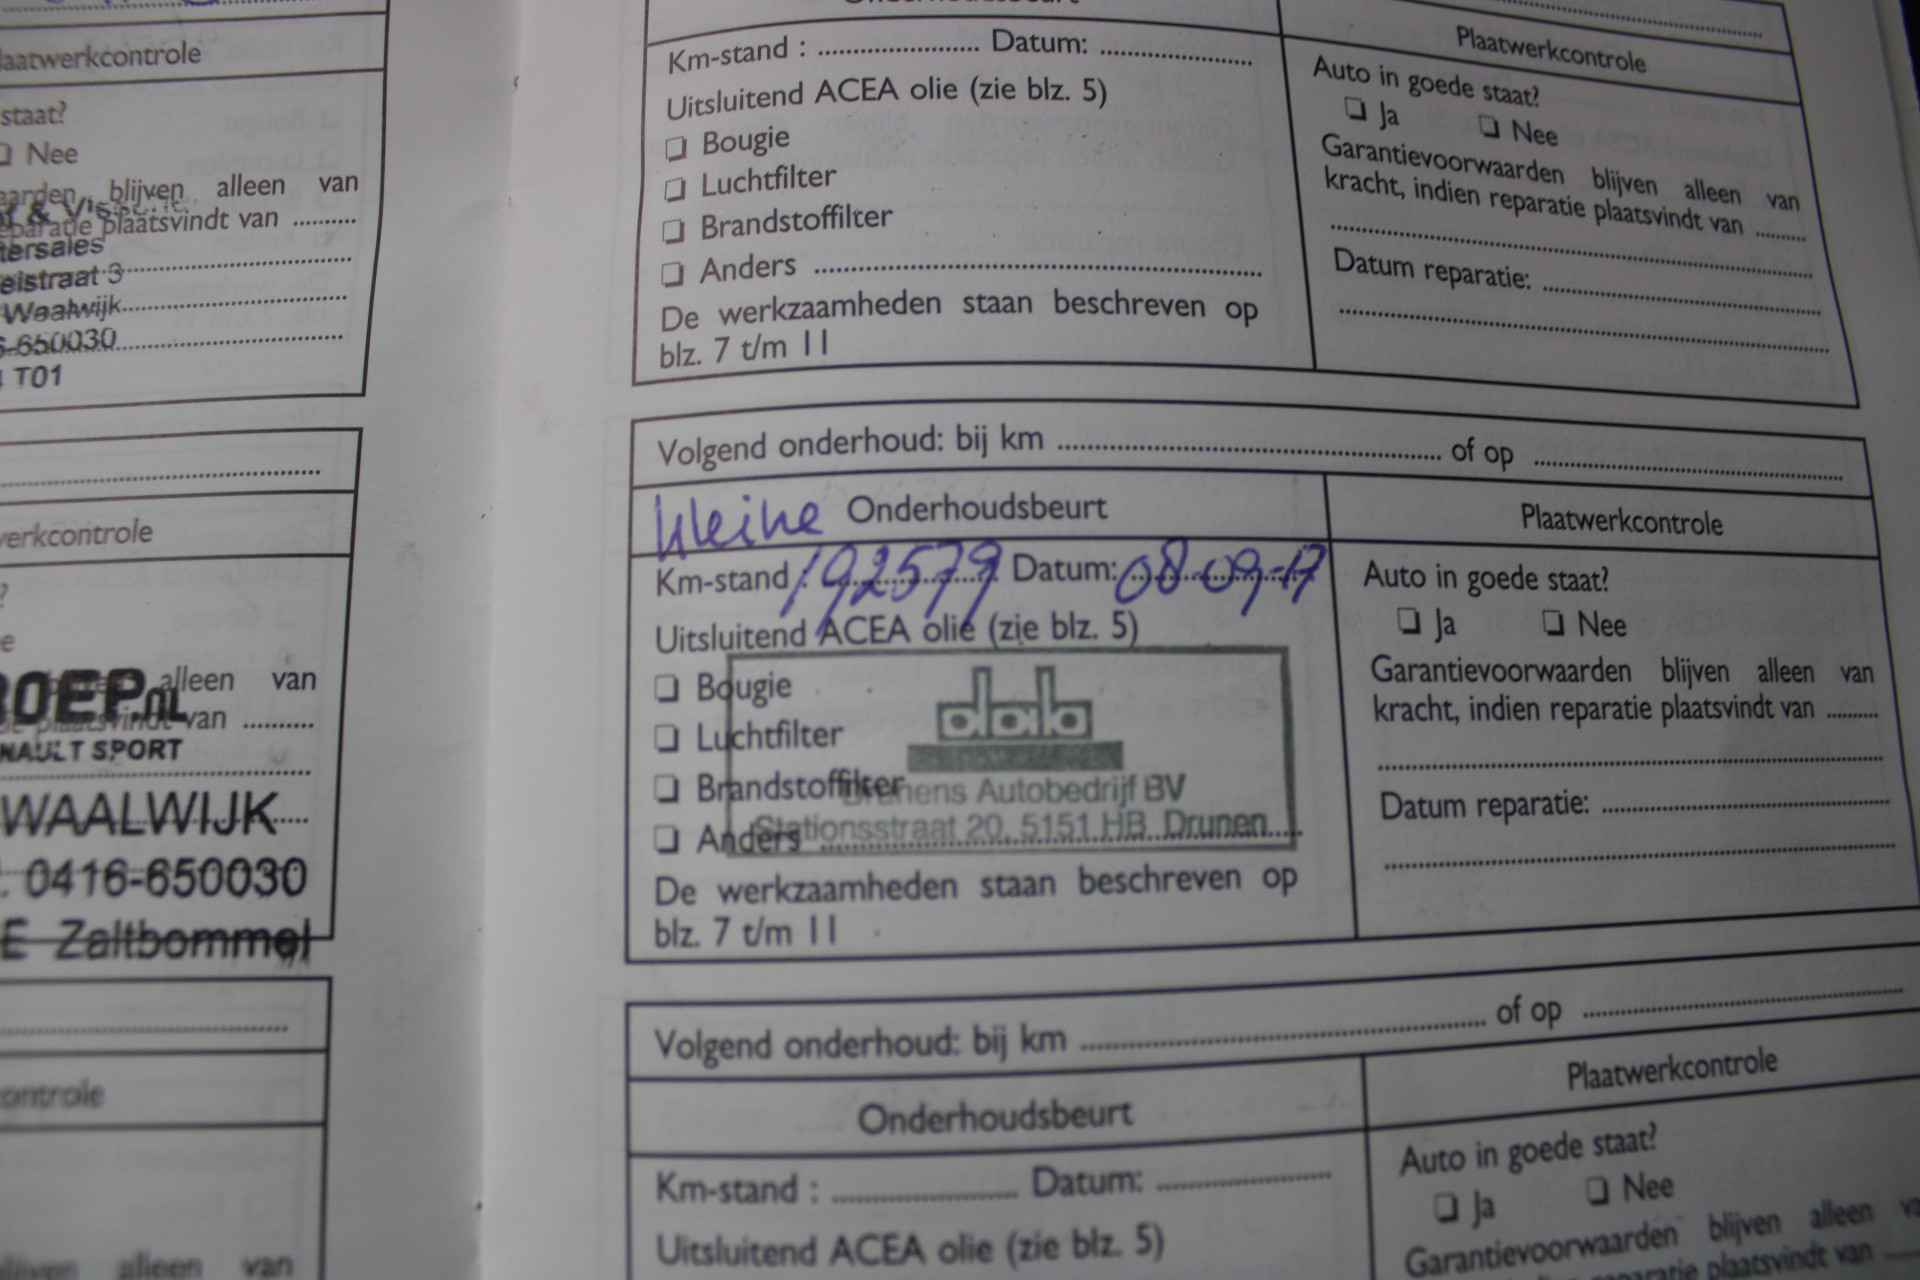 laatwerkcontrole
staat?
Nee
aarden blijven alleen van
reparatie plaatsvindt van ..........
tersales
elstraat 3
Waalwijk
6-650030
T01
verkcontrole
?
e
ROEP.NL
alleen van
plaatsvindt van ..........
NAULT SPORT
WAALWIJK
. 0416-650030
E Zaltbommel
controle
blijven alleen van
Onderhoudsbeurt
Km-stand : .................... Datum: ....................
Uitsluitend ACEA olie (zie blz. 5)
❏ Bougie
❏ Luchtfilter
❏ Brandstoffilter
❏ Anders ..................................................
De werkzaamheden staan beschreven op
blz. 7 t/m 11
Plaatwerkcontrole
Auto in goede staat?
❏ Ja ❏ Nee
Garantievoorwaarden blijven alleen van
kracht, indien reparatie plaatsvindt van ........
Datum reparatie: ..............................
Volgend onderhoud: bij km .................................................. of op ........................................
kleine Onderhoudsbeurt
Km-stand : 192579 Datum: 08-09-17
Uitsluitend ACEA olie (zie blz. 5)
❏ Bougie
❏ Luchtfilter
❏ Brandstoffilter
❏ Anders ..................................................
De werkzaamheden staan beschreven op
blz. 7 t/m 11
dala
Autobedrijf BV
Stationsstraat 20, 5151 HB Drunen
Plaatwerkcontrole
Auto in goede staat?
❏ Ja ❏ Nee
Garantievoorwaarden blijven alleen van
kracht, indien reparatie plaatsvindt van ........
Datum reparatie: ..............................
Volgend onderhoud: bij km .................................................. of op ........................................
Onderhoudsbeurt
Km-stand : .................... Datum: ....................
Uitsluitend ACEA olie (zie blz. 5)
Plaatwerkcontrole
Auto in goede staat?
❏ Ja ❏ Nee
Garantievoorwaarden blijven alleen va
reparatie plaatsvindt van